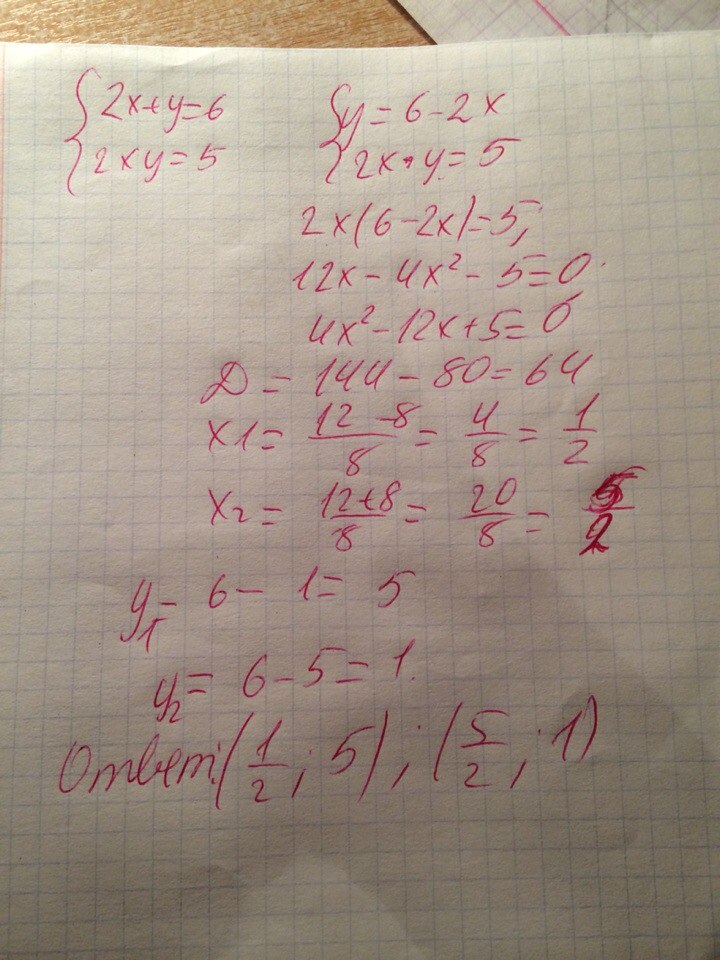 {2x+y=6 {y=6-2x
{2xy=5 {2x·y=5
2x(6-2x)=5;
12x-4x²-5=0.
4x²-12x+5=0
D=144-80=64
x1=12-8/8=4/8=1/2
x2=12+8/8=20/8=5/2
y1=6-1=5
y2=6-5=1.
Ответ:(1/2;5);(5/2;1)